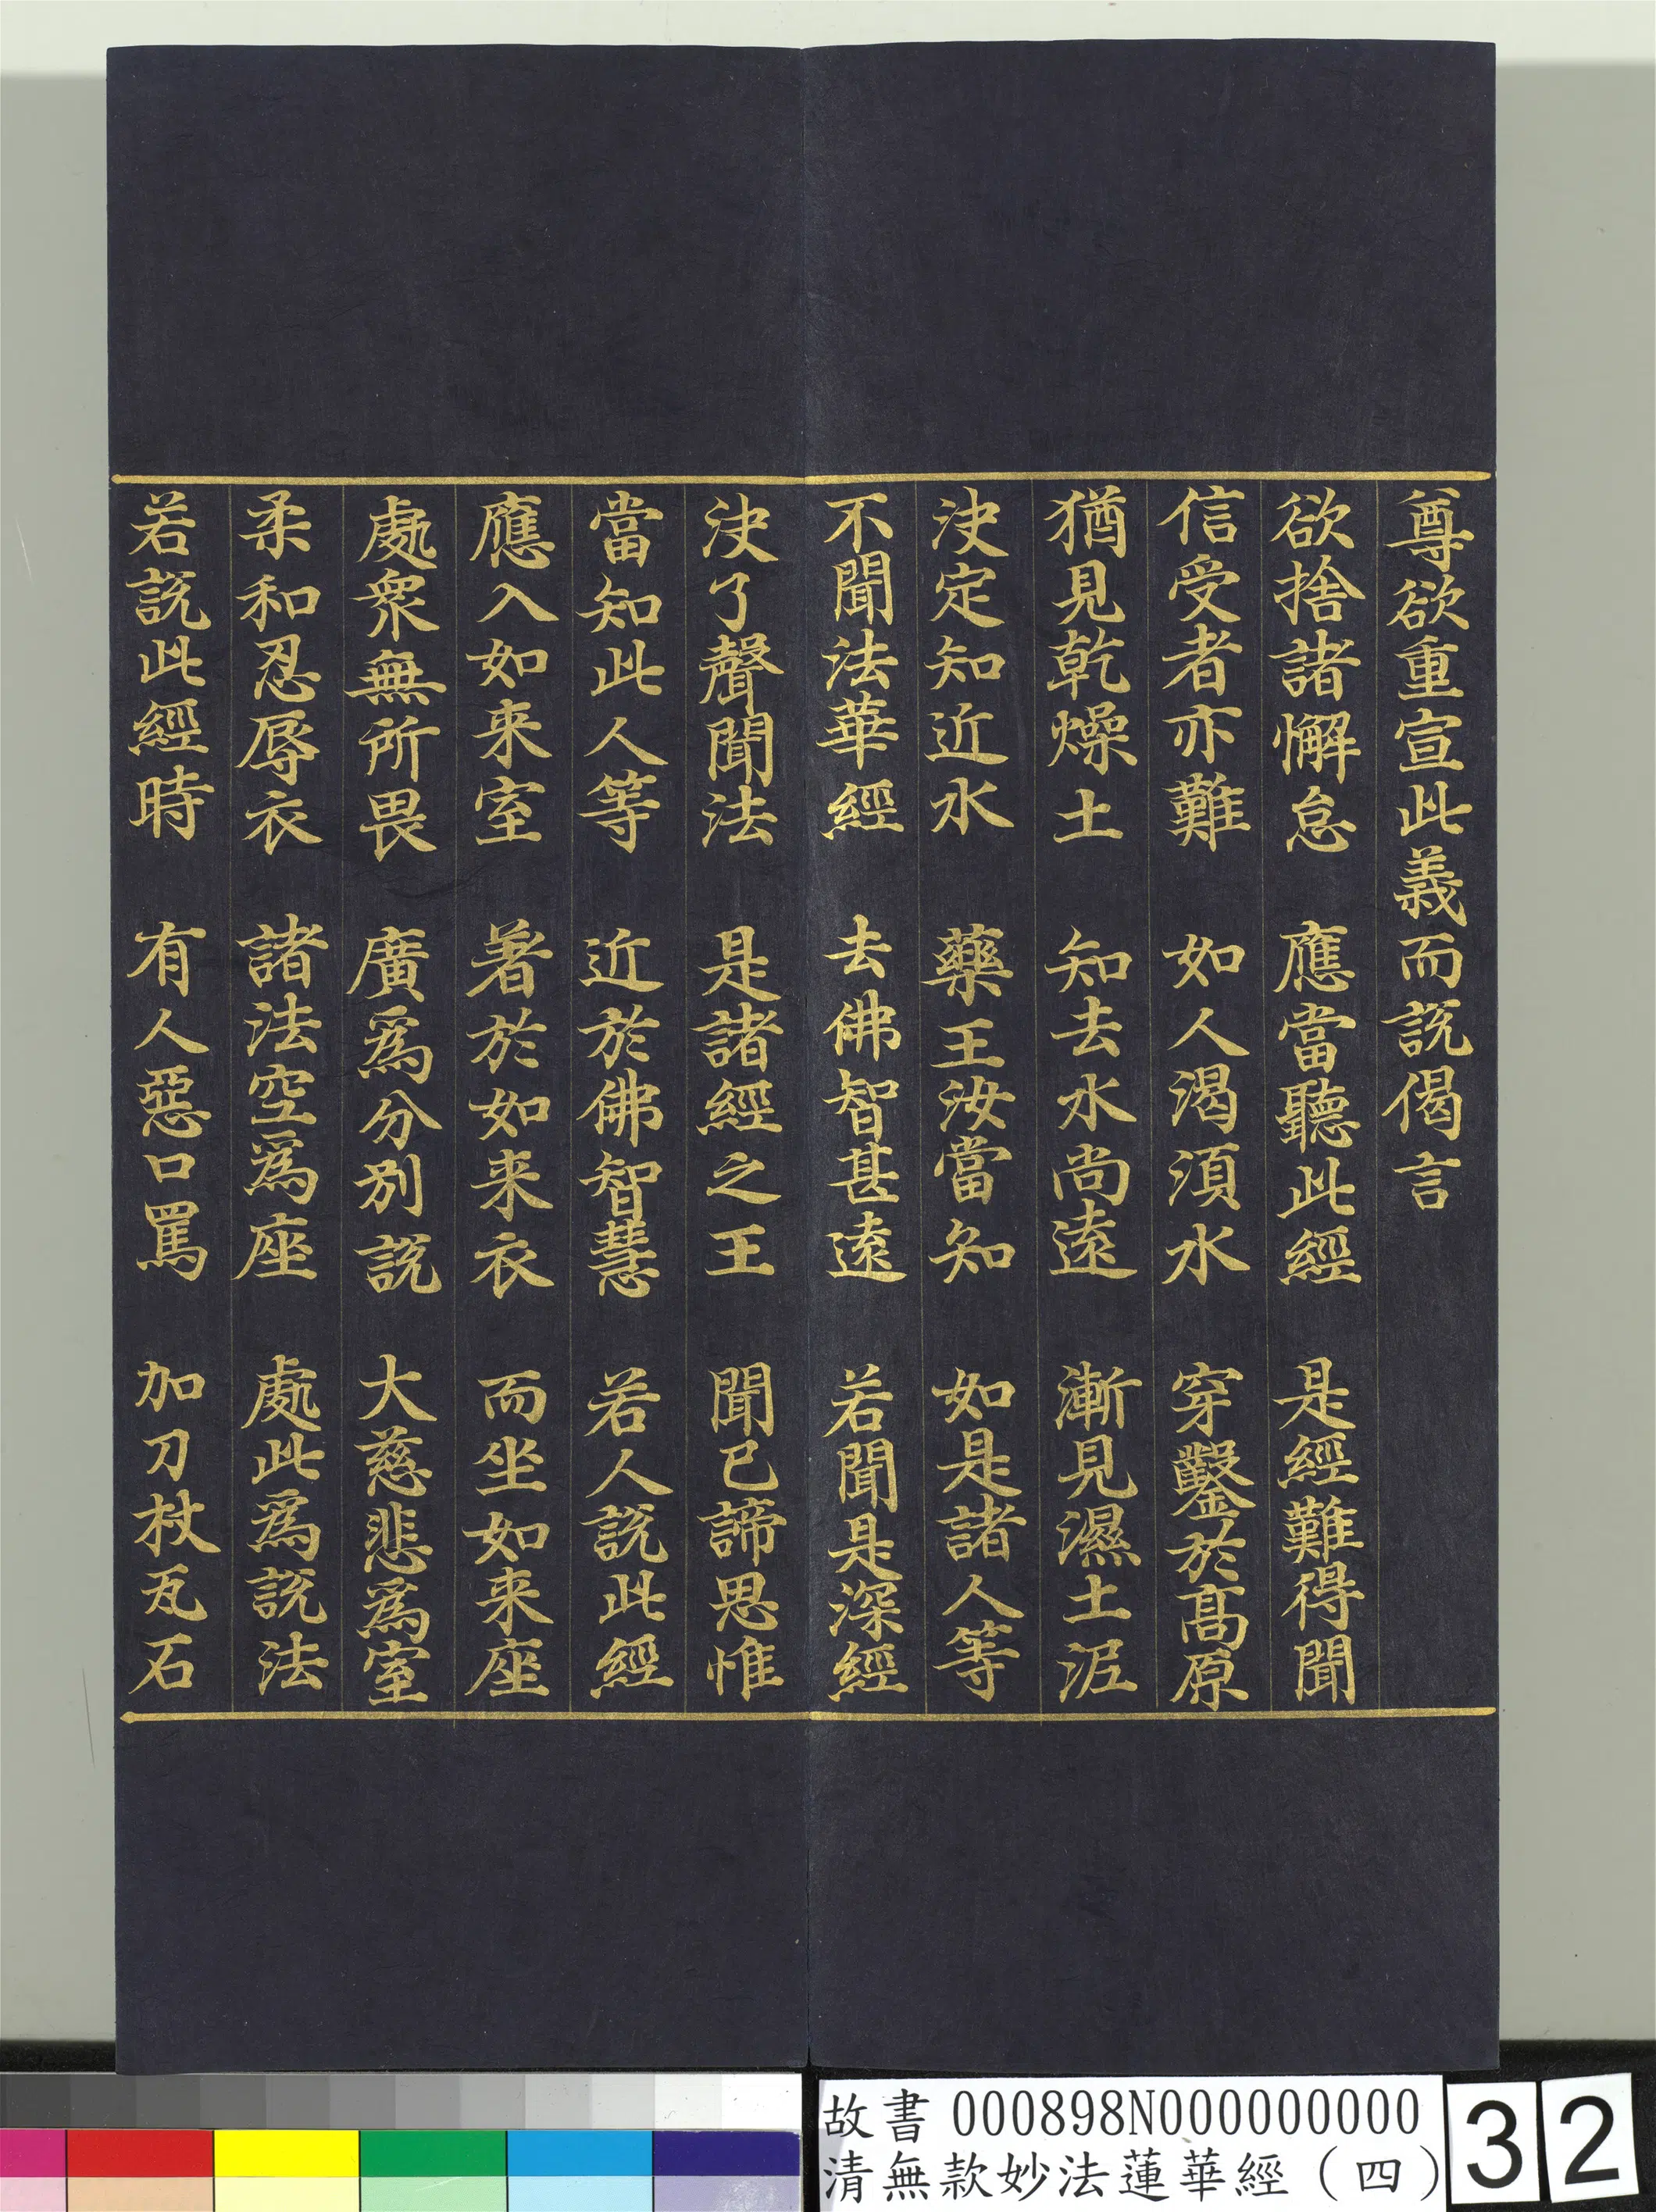 尊欲重宣此義而説偈言
欲捨諸懈怠　應當聽此經　是經難得聞
信受者亦難　如人渴須水　穿鑿於髙原
猶見乾燥土　知去水尚遠　漸見濕土泥
决定知近水　藥王汝當知　如是諸人等
不聞法華經　去佛智甚遠　若聞是深經
决了聲聞法　是諸經之王　聞已諦思惟
當知此人等　近於佛智慧　若人説此經
應入如来室　著於如来衣　而坐如来座
處衆無所畏　廣為分别説　大慈悲為室
柔和忍辱衣　諸法空為座　處此為説法
若説此經時　有人惡口罵　加刀杖瓦石
故書 000898N000000000
清無款妙法蓮華經（四）
32